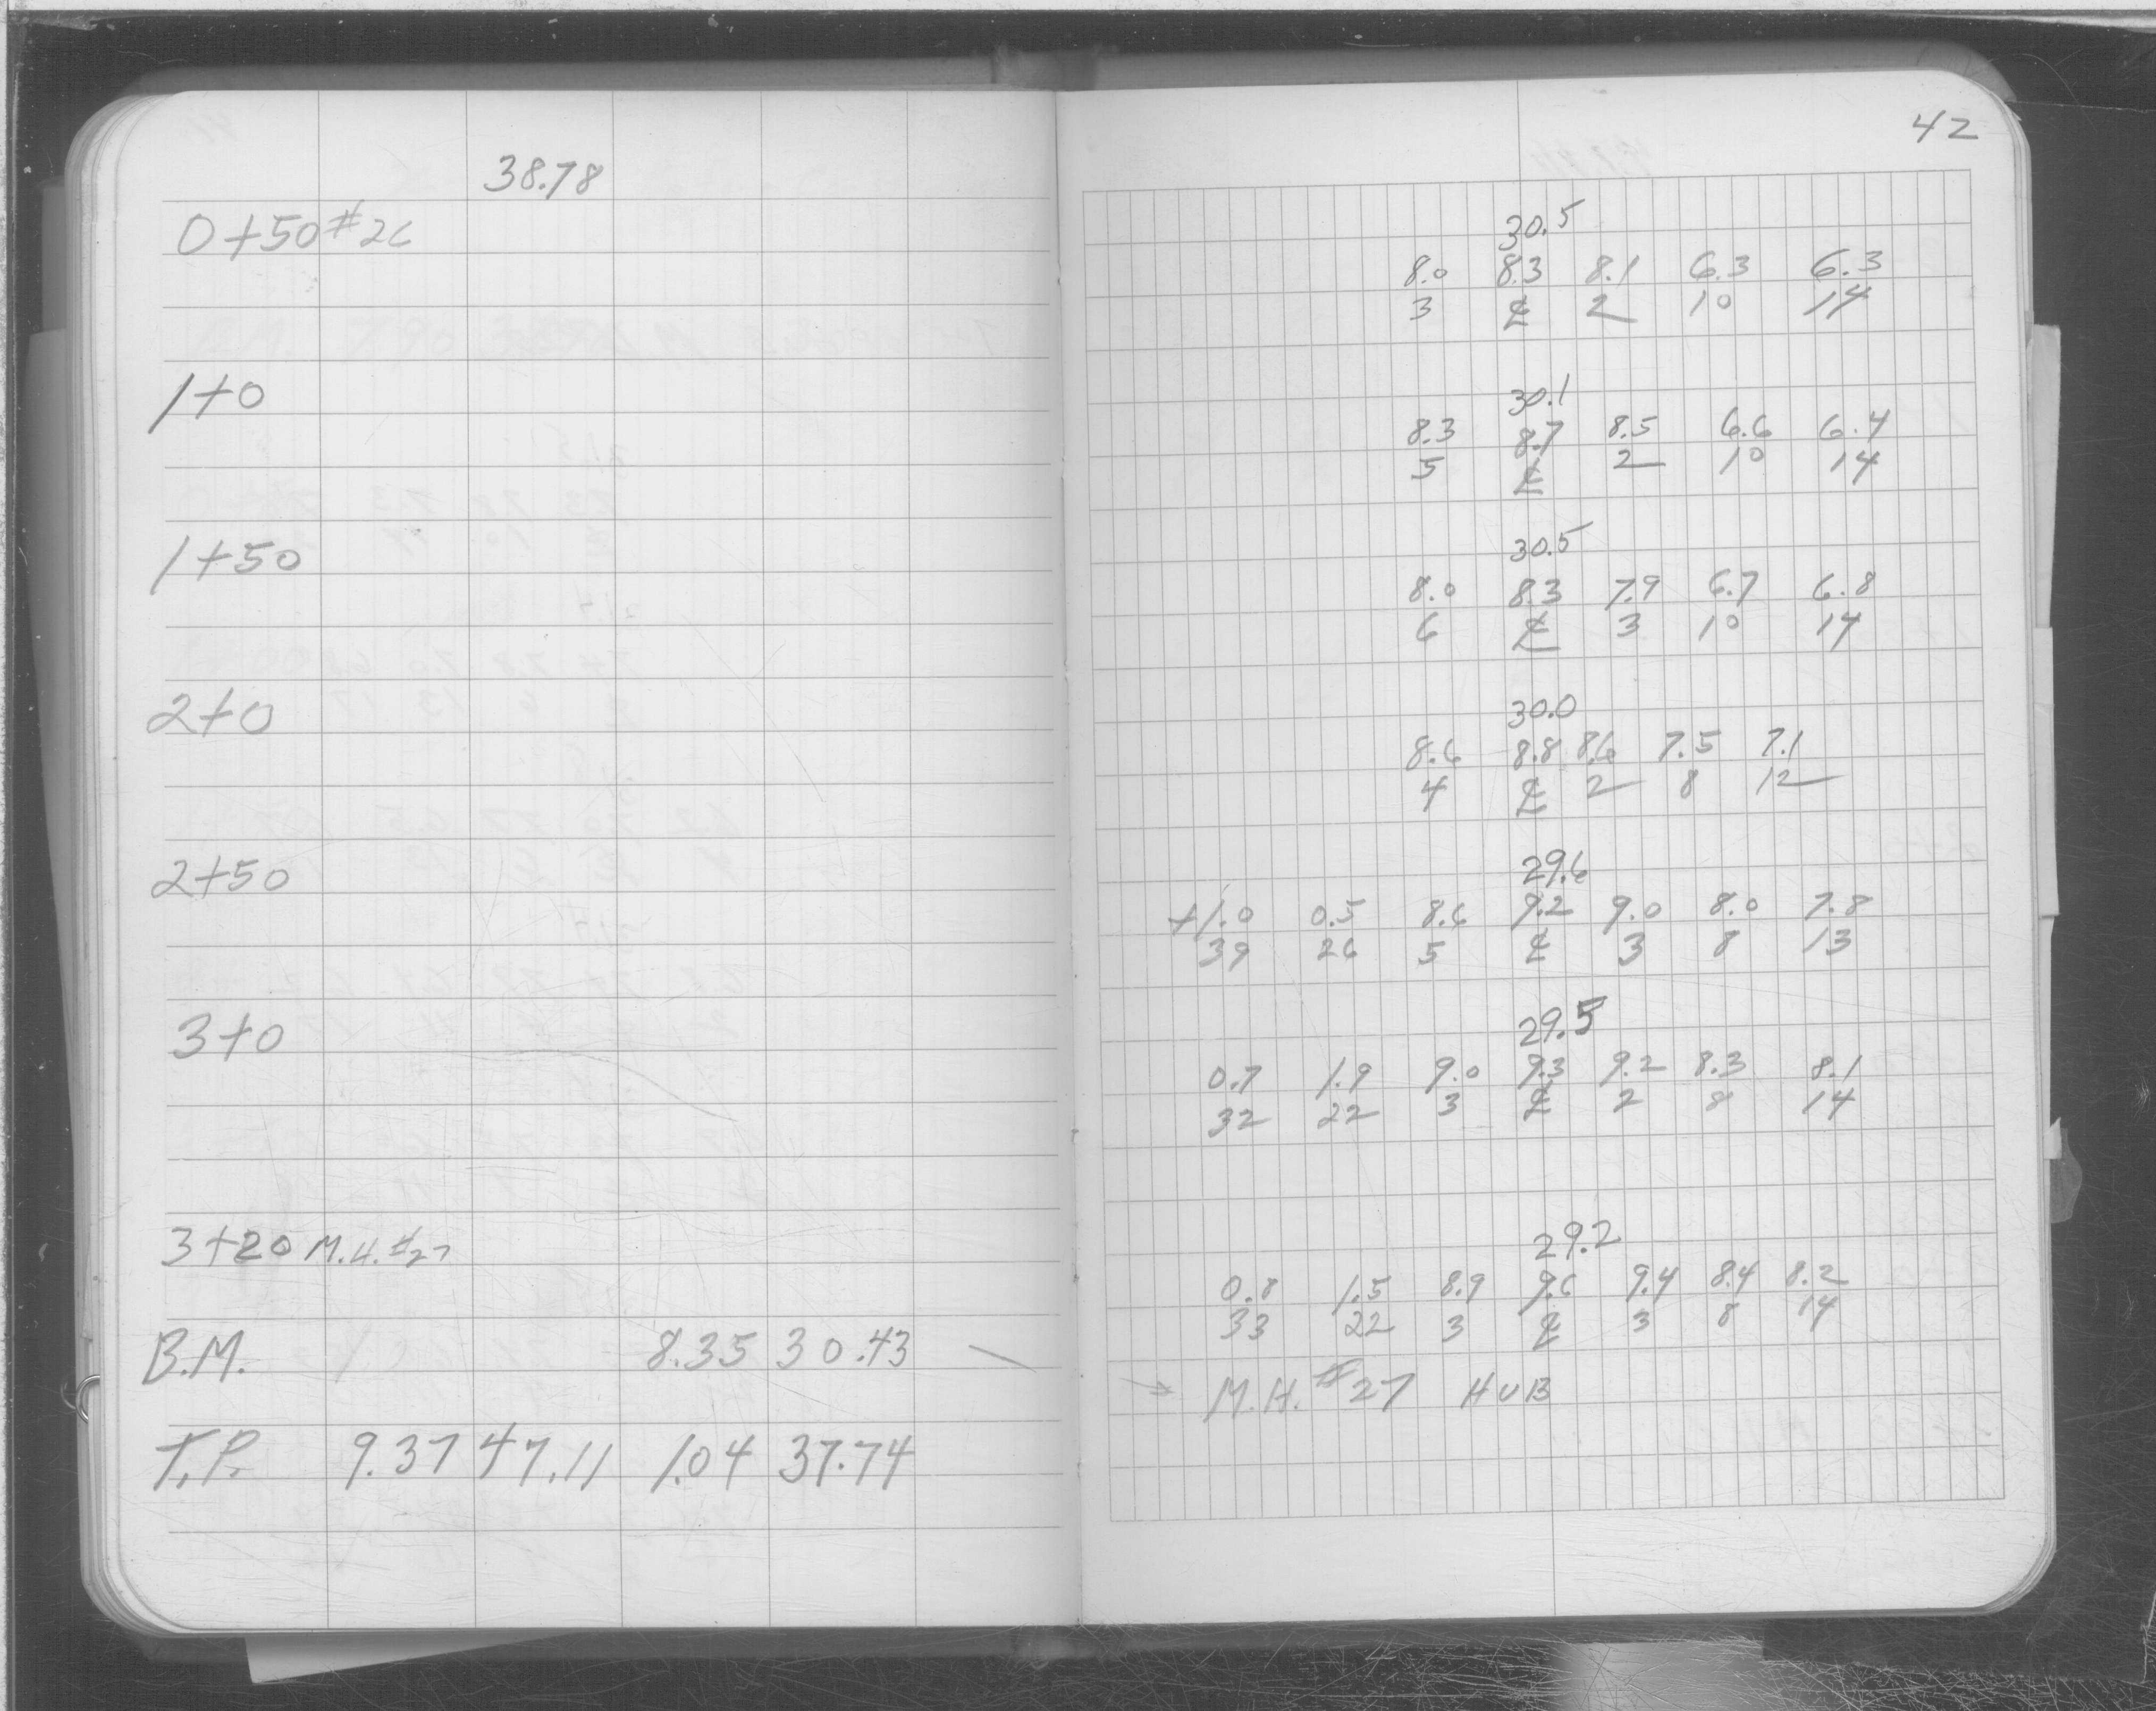 42
38.78
0+50 #26
30.5
8.0 8.3 8.1 6.3 6.3
3 ℄ 2 10 14
1+0
30.1
8.3 8.7 8.5 6.6 6.4
5 ℄ 2 10 14
1+50
30.5
8.0 8.3 7.9 6.7 6.8
6 ℄ 3 10 14
2+0
30.0
8.6 8.8 8.6 7.5 7.1
4 ℄ 2 8 12
2+50
29.6
+1.0 0.5 8.6 9.2 9.0 8.0 7.8
39 26 5 ℄ 3 8 13
3+0
29.5
0.7 1.9 9.0 9.3 9.2 8.3 8.1
32 22 3 ℄ 2 8 14
3+20 M.H. #27
29.2
0.8 1.5 8.9 9.6 9.4 8.4 8.2
33 22 3 ℄ 3 8 14
B.M. 8.35 30.43
→ M.H. #27 HUB
T.P. 9.37 47.11 1.04 37.74